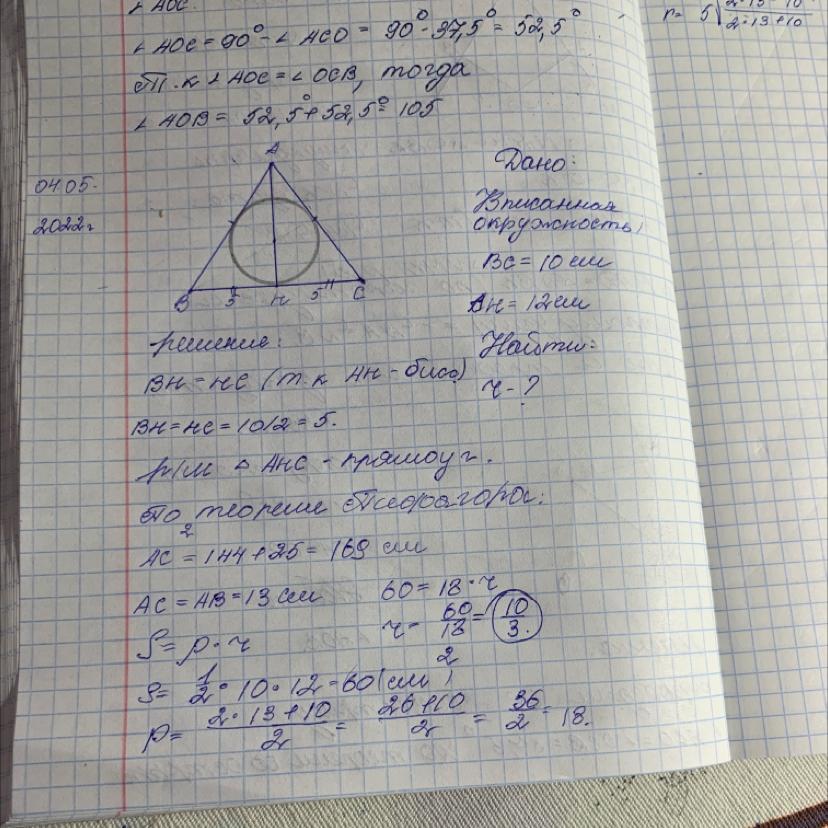 ∠AOC.
∠AOC = 90° - ∠ACO = 90° - 37,5° = 52,5°
Т.к ∠AOC = ∠OCB, тогда
∠AOB = 52,5° + 52,5° = 105
04.05.
2022г
A
B 5 H 5 C
Дано:
Вписанная
окружность,
BC = 10 см
AH = 12 см
Найти:
r - ?
решение:
BH = HC (т.к AH - бисс)
BH = HC = 10/2 = 5.
р/м △ AHC - прямоуг.
По теореме Пифагора:
AC² = 144 + 25 = 169 см
AC = AB = 13 см
S = p · r
S = 1/2 · 10 · 12 = 60 (см²)
p = (2 · 13 + 10)/2 = (26 + 10)/2 = 36/2 = 18.
60 = 18 · r
r = 60/18 = 10/3.